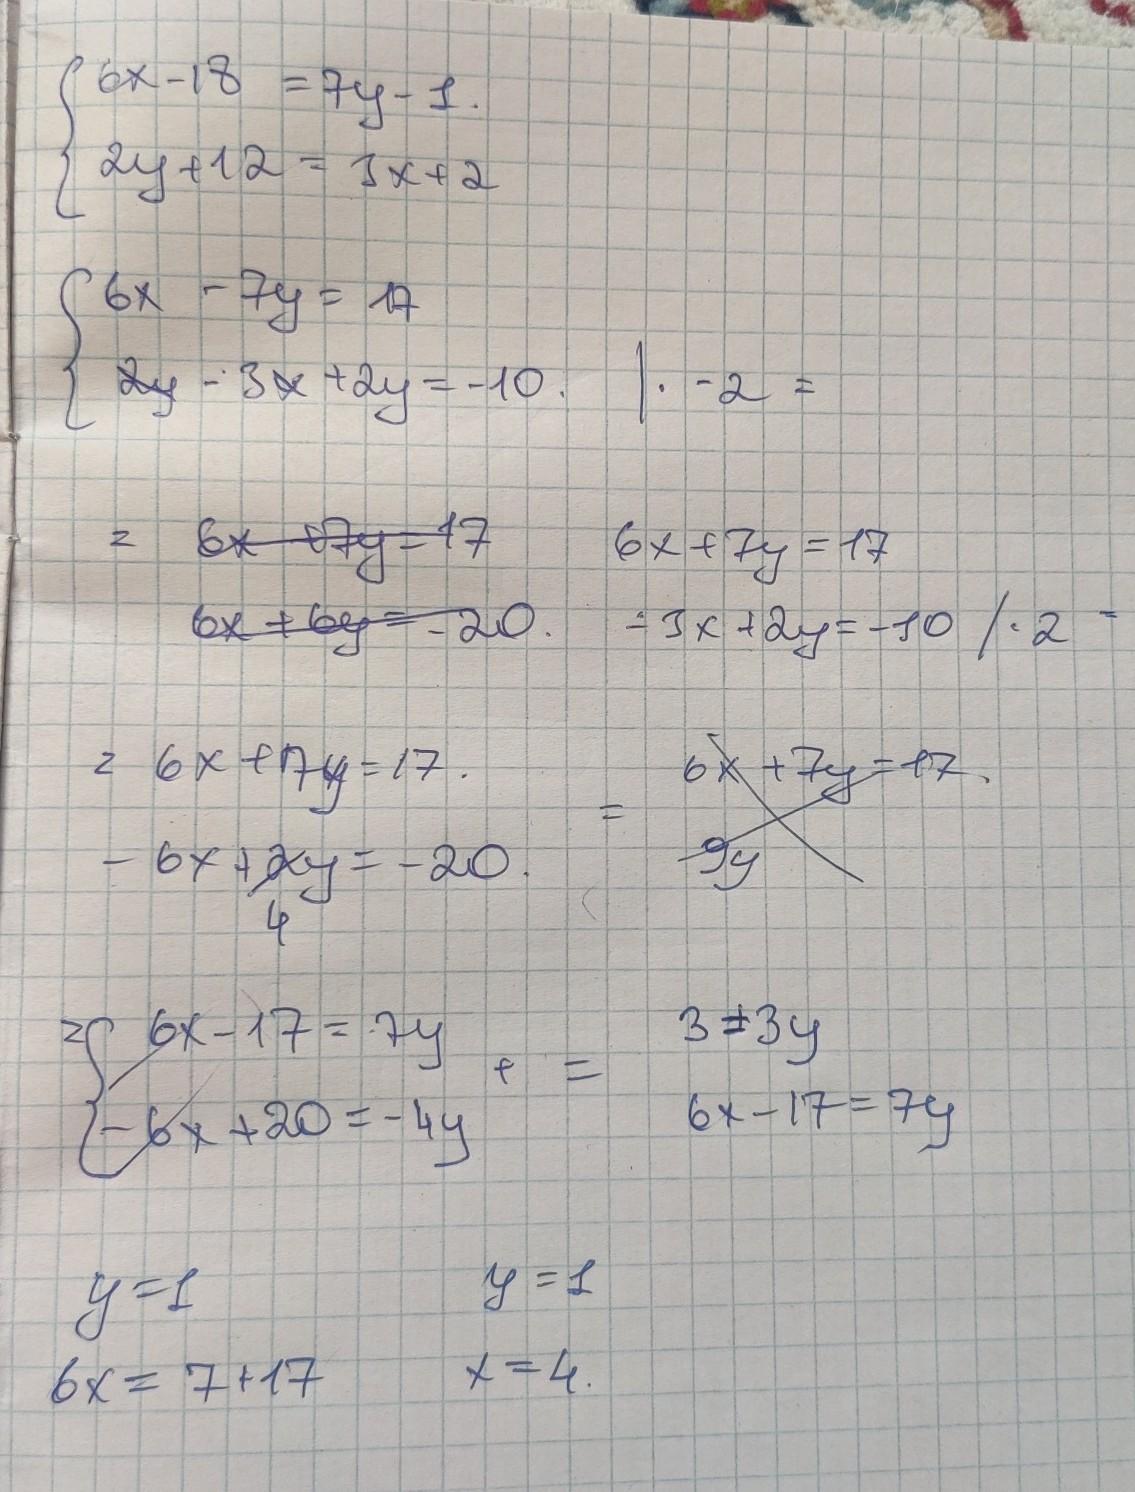 6x-18 = 7y-1.
2y+12 = 3x+2
6x - 7y = 17
2y - 3x + 2y = -10. |· -2 =
= 6x + 7y = 17 6x + 7y = 17
6x + 6y = -20. -3x + 2y = -10 /· 2 =
= 6x + 7y = 17. = 6x + 7y = 17.
- 6x + 2y = -20. -9y
4
= 6x - 17 = 7y + = 3 = 3y
-6x + 20 = -4y 6x - 17 = 7y
y = 1 y = 1
6x = 7 + 17 x = 4.